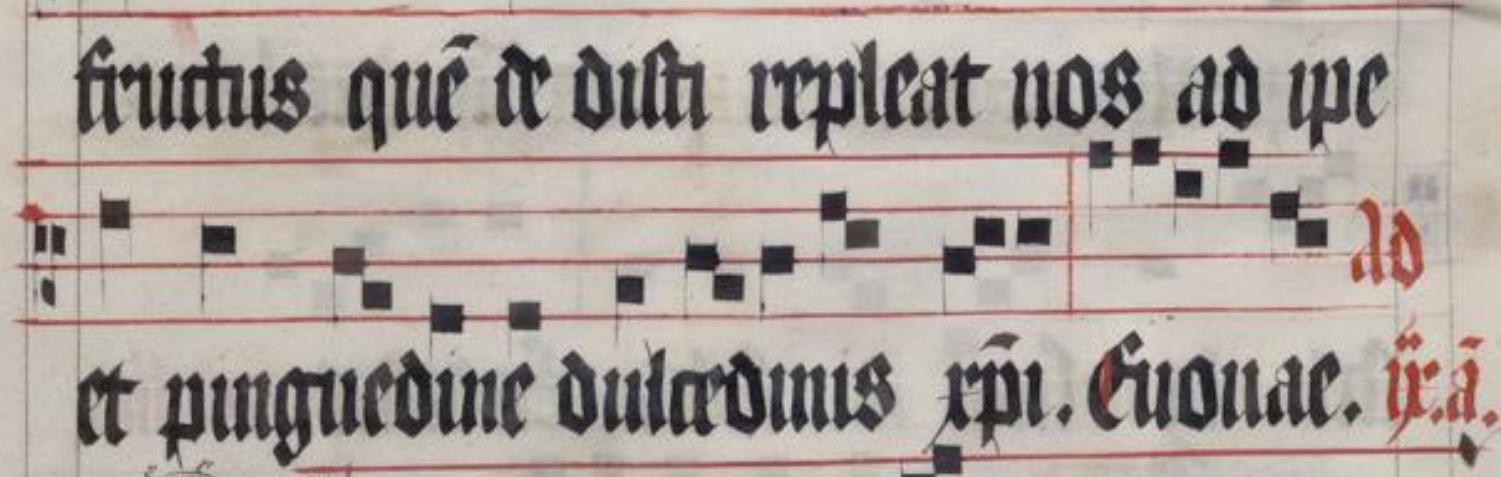 fructus quē de disti repleat nos ad ipe
ad
et pinguedine dulcedinis xp̄i. Euouae. ix. a̅.